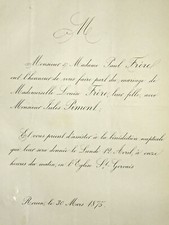 M
Monsieur & Madame Paul Frère
ont l'honneur de vous faire part du mariage de
Mademoiselle Louise Frère, leur fille, avec
Monsieur Jules Pimont.
Et vous prient d'assister à la bénédiction nuptiale
qui leur sera donnée le Lundi 19 Avril, à onze
heures du matin, en l'Eglise St Gervais.
Rouen, le 30 Mars 1875